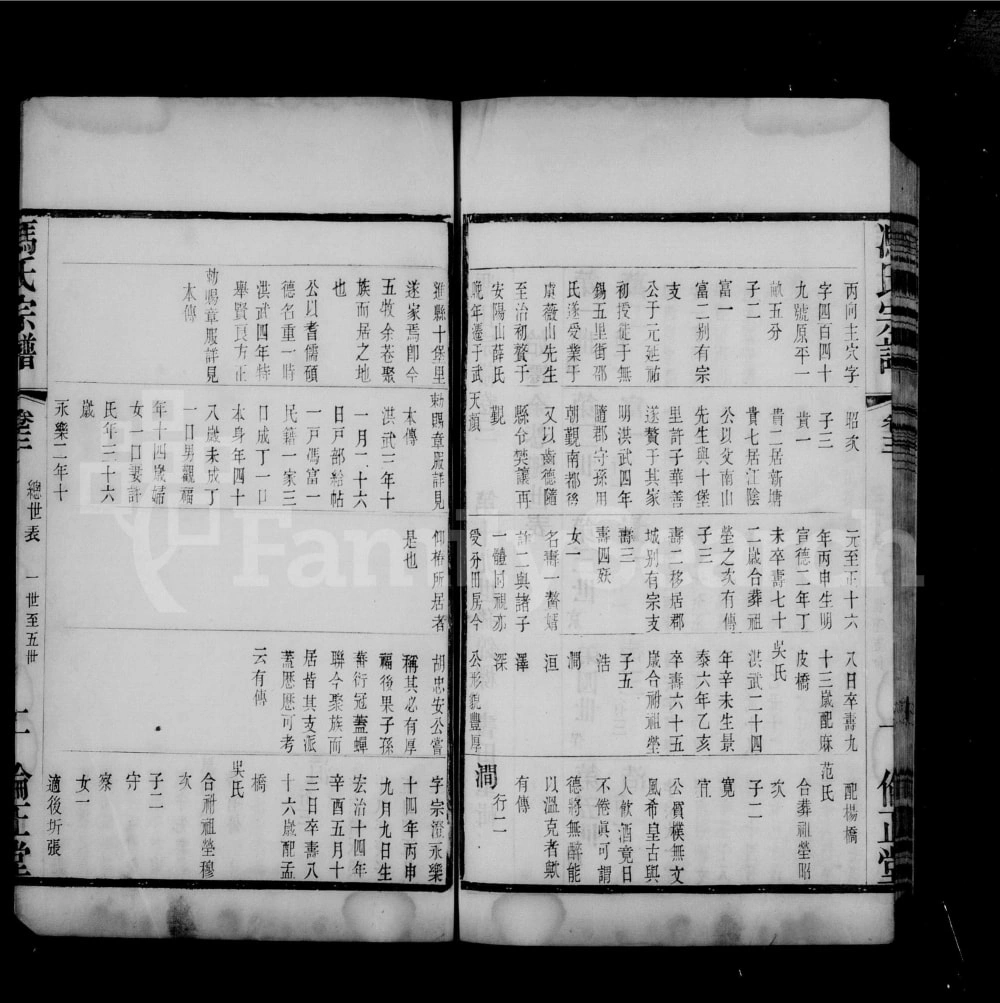 馮氏宗譜
卷三
一
倫正堂
丙向主穴字
字四百四十
九號原平一
畝五分
子二
富一
富二别有宗
支
公于元延祐
初授徒于無
錫五里街邵
氏遂受業于
虞薇山先生
至治初贅于
安陽山薛氏
晚年遷于武
昭次
子三
貴一
貴二居新塘
貴七居江陰
公以父南山
先生與十堡
里許子華善
遂贅于其家
明洪武四年
隨郡守孫用
朝覲南都後
又以齒德隨
縣令樊讓再
覲
天顏
元至正十六
年丙申生明
宣德二年丁
未卒壽七十
二歲合葬祖
塋之次有傳
子三
壽二移居郡
城别有宗支
壽三
壽四殀
女一
名壽一贅婿
註二與諸子
一體同視亦
受分田房今
八日卒壽九
十三歲配麻
皮橋
吳氏
洪武二十四
年辛未生景
泰六年乙亥
卒壽六十五
歲合祔祖塋
子五
浩
澗
洹
澤
深
公形貌豐厚
配楊橋
范氏
合葬祖塋昭
次
子二
寬
宜
公質樸無文
風希皇古與
人飲酒竟日
不倦眞可謂
德將無醉能
以溫克者歟
有傳
澗
行二
進縣十堡里
遂家焉卽今
五牧余巷聚
族而居之地
也
公以耆儒碩
德名重一時
洪武四年特
舉賢良方正
勅賜章服詳見
本傳
勅賜章服詳見
本傳
洪武三年十
一月二十六
日戸部給帖
一戸馮富一
民籍一家三
口成丁一口
本身年四十
八歲未成丁
一口男觀福
年十四歲婦
女一口妻許
氏年三十六
歲
永樂二年十
仰椿所居者
是也
胡忠安公嘗
稱其必有厚
福後果子孫
蕃衍冠蓋蟬
聯今聚族而
居皆其支派
蓋歷歷可考
云有傳
字宗澄永樂
十四年丙申
九月九日生
宏治十四年
辛酉五月十
三日卒壽八
十六歲配孟
橋
吳氏
合祔祖塋穆
次
子二
守
察
女一
適後圻張
馮氏宗譜
卷三
總世表
一世至五世
二
倫正堂
FamilySearch